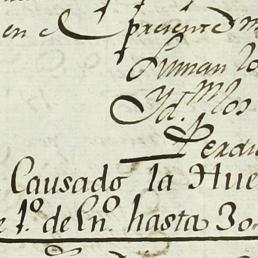 en el presente m
suman lo
Yd. los
Perdi
Causado la Hue
e 1º. de Enº. hasta 30